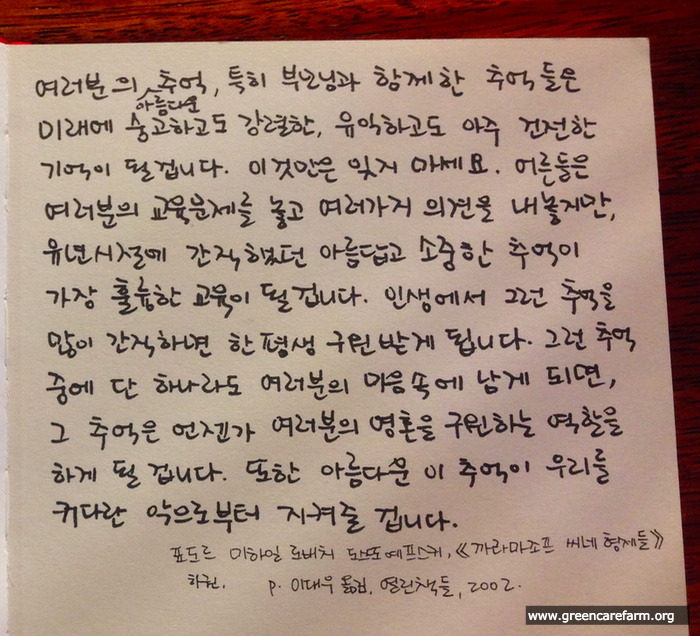 여러분의 아름다운 추억, 특히 부모님과 함께한 추억들은
미래에 숭고하고도 강렬한, 유익하고도 아주 건전한
기억이 될 겁니다. 이것만은 잊지 마세요. 어른들은
여러분의 교육문제를 놓고 여러가지 의견을 내놓지만,
유년시절에 간직했던 아름답고 소중한 추억이
가장 훌륭한 교육이 될 겁니다. 인생에서 그런 추억을
많이 간직하면 한평생 구원받게 됩니다. 그런 추억
중에 단 하나라도 여러분의 마음속에 남게 되면,
그 추억은 언젠가 여러분의 영혼을 구원하는 역할을
하게 될 겁니다. 또한 아름다운 이 추억이 우리를
커다란 악으로부터 지켜줄 겁니다.
표도르 미하일로비치 도스또예프스키, 《까라마조프 씨네 형제들》
하권, p. 이대우 옮김, 열린책들, 2002.
www.greencarefarm.org